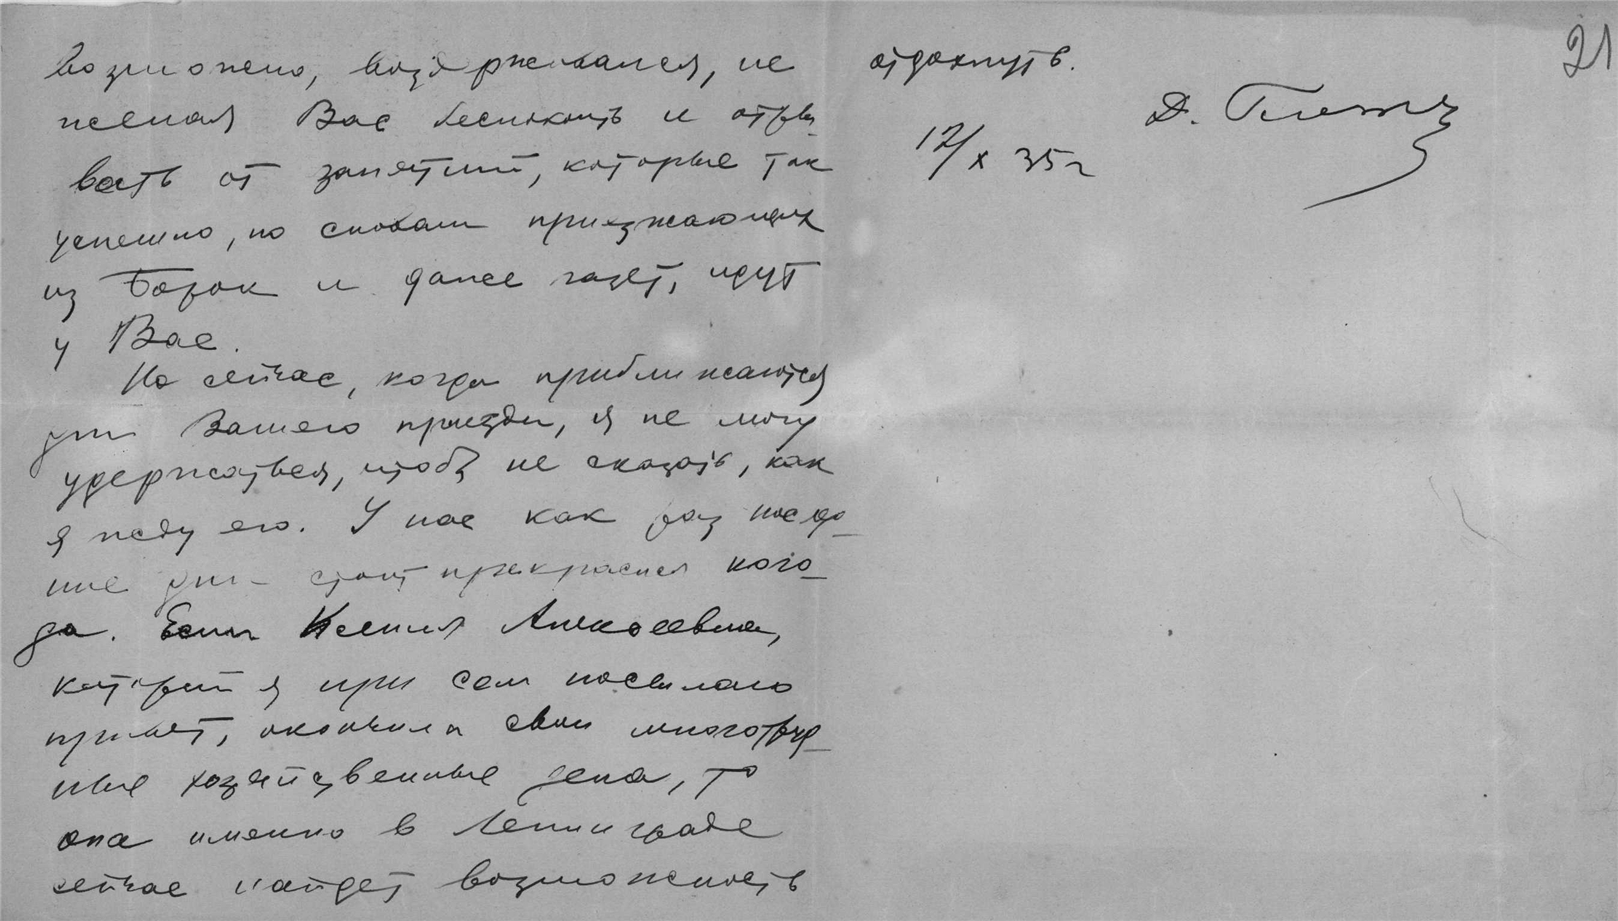 возможно, воздерживался, не
желая Вас беспокоить и отры-
вать от занятий, которые так
успешно, по словам приезжающих
из Борок и даже газет, идут
у Вас.
Но сейчас, когда приближаются
дни Вашего приезда, я не могу
удержаться, чтобы не сказать, как
я жду его. У нас как раз послед-
ние дни стоит прекрасная пого-
да. Если Ксения Алексеевна,
которой я при сем посылаю
привет, окончила свои многотруд-
ные хозяйственные дела, то
она именно в Ленинграде
сейчас найдет возможность
отдохнуть.
Д.
12/X 35 г
21